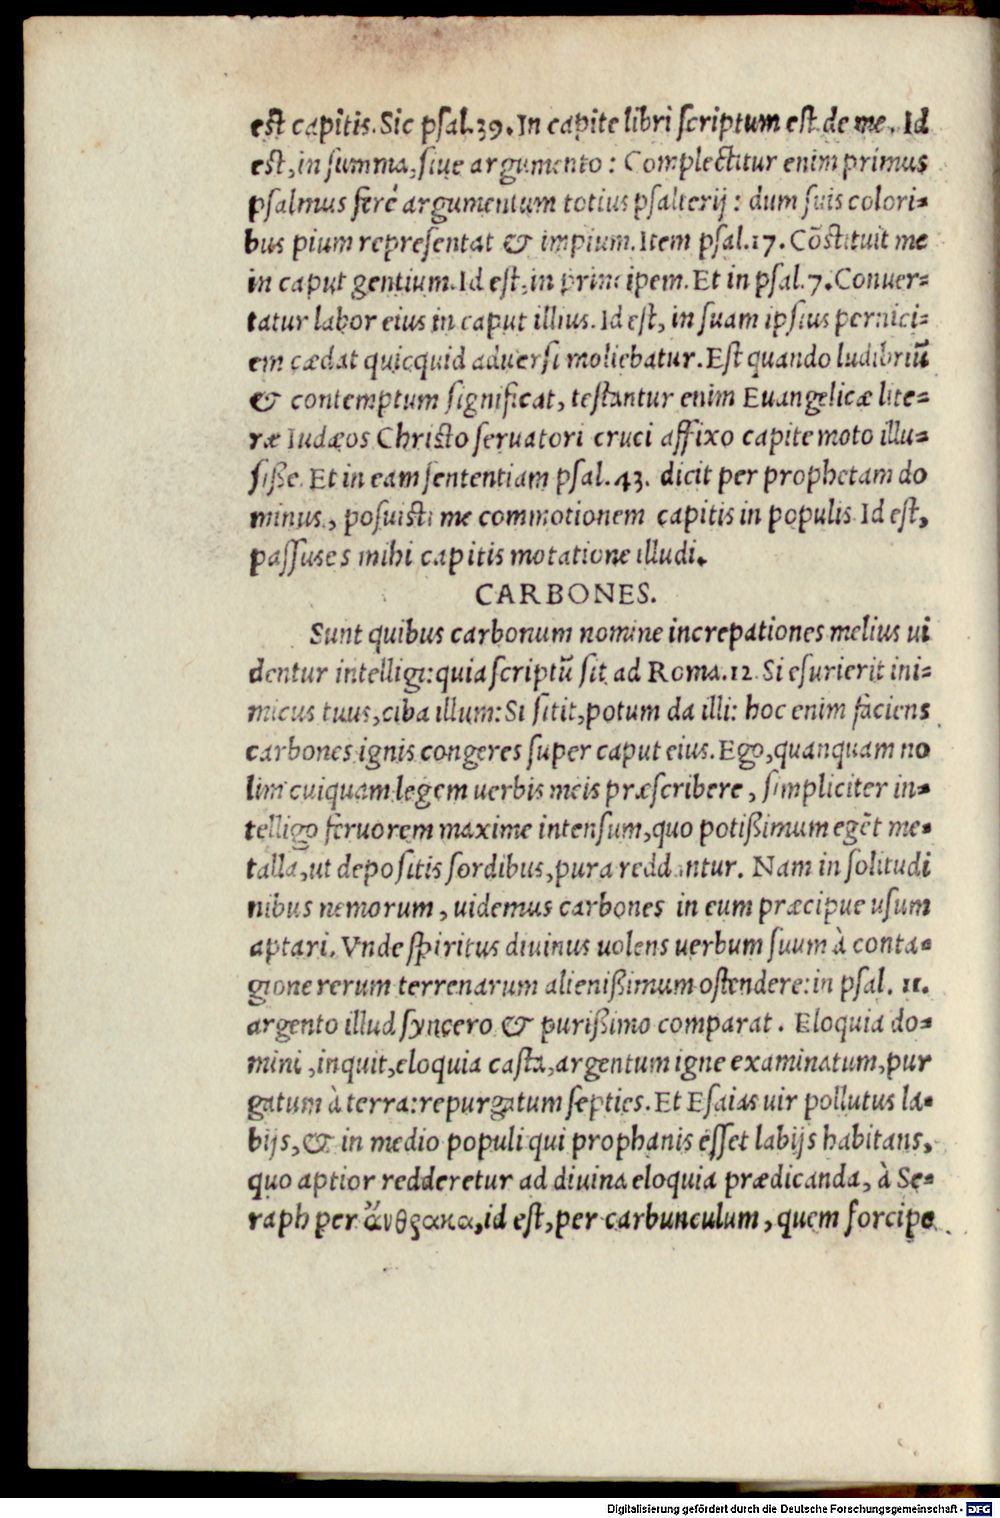 est capitis. Sic psal.39. In capite libri scriptum est de me. Id
est, in summa, siue argumento: Complectitur enim primus
psalmus ferè argumentum totius psalterij: dum suis colori-
bus pium representat & impium. Item psal.17. Cõstituit me
in caput gentium. Id est, in principem. Et in psal.7. Conuer-
tatur labor eius in caput illius. Id est, in suam ipsius pernici-
em cædat quicquid aduersi moliebatur. Est quando ludibriũ
& contemptum significat, testantur enim Euangelicæ lite-
ræ Iudæos Christo seruatori cruci affixo capite moto illu-
siße. Et in eam sententiam psal.43. dicit per prophetam do
minus, posuisti me commotionem capitis in populis Id est,
passus es mihi capitis motatione illudi.
CARBONES.
Sunt quibus carbonum nomine increpationes melius ui
dentur intelligi: quia scriptũ sit ad Roma.12 Si esurierit ini-
micus tuus, ciba illum: Si sitit, potum da illi: hoc enim faciens
carbones ignis congeres super caput eius. Ego, quanquam no
lim cuiquam legem uerbis meis præscribere, simpliciter in-
telligo feruorem maxime intensum, quo potißimum egẽt me-
talla, ut depositis sordibus, pura reddantur. Nam in solitudi
nibus nemorum, uidemus carbones in eum præcipue usum
aptari. Vnde spiritus diuinus uolens uerbum suum à conta-
gione rerum terrenarum alienißimum ostendere: in psal. 11.
argento illud syncero & purißimo comparat. Eloquia do-
mini, inquit, eloquia casta, argentum igne examinatum, pur
gatum à terra: repurgatum septies. Et Esaias uir pollutus la-
bijs, & in medio populi qui prophanis esset labijs habitans,
quo aptior redderetur ad diuina eloquia prædicanda, à Se-
raph per ἄνθρακα, id est, per carbunculum, quem forcipe
Digitalisierung gefördert durch die Deutsche Forschungsgemeinschaft - DFG